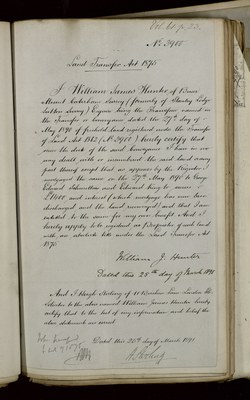 No. 3901
Land Transfer Act 1875
I William James Hunter of
Mount Caterham Surrey (formerly of Stanley Lodge
Surrey) Esquire being the Transferee named in
the Transfer or Conveyance dated the 29th day of
May 1890 of freehold land registered under the Transfer
of Land Act 1862 (No. 3901) hereby certify that
since the date of the said Conveyance I have in no
way dealt with or incumbered the said land or any
part thereof except that as appears by the Register I
mortgaged the same on the 29th May 1890 to
Edward and Edward King to secure
and interest (which mortgage has now been
discharged and the land reconveyed) and that I am
entitled to the same for my own benefit And I
hereby apply to be registered as Proprietor of such land
with an absolute title under the Land Transfer Act
1875.
William J. Hunter
Dated this 20th day of March 1891
And I Hugh of 15 Lane London
Solicitor to the above named William James Hunter hereby
certify that to the best of my information and belief the
above statements are correct
Dated this 20th day of March 1891